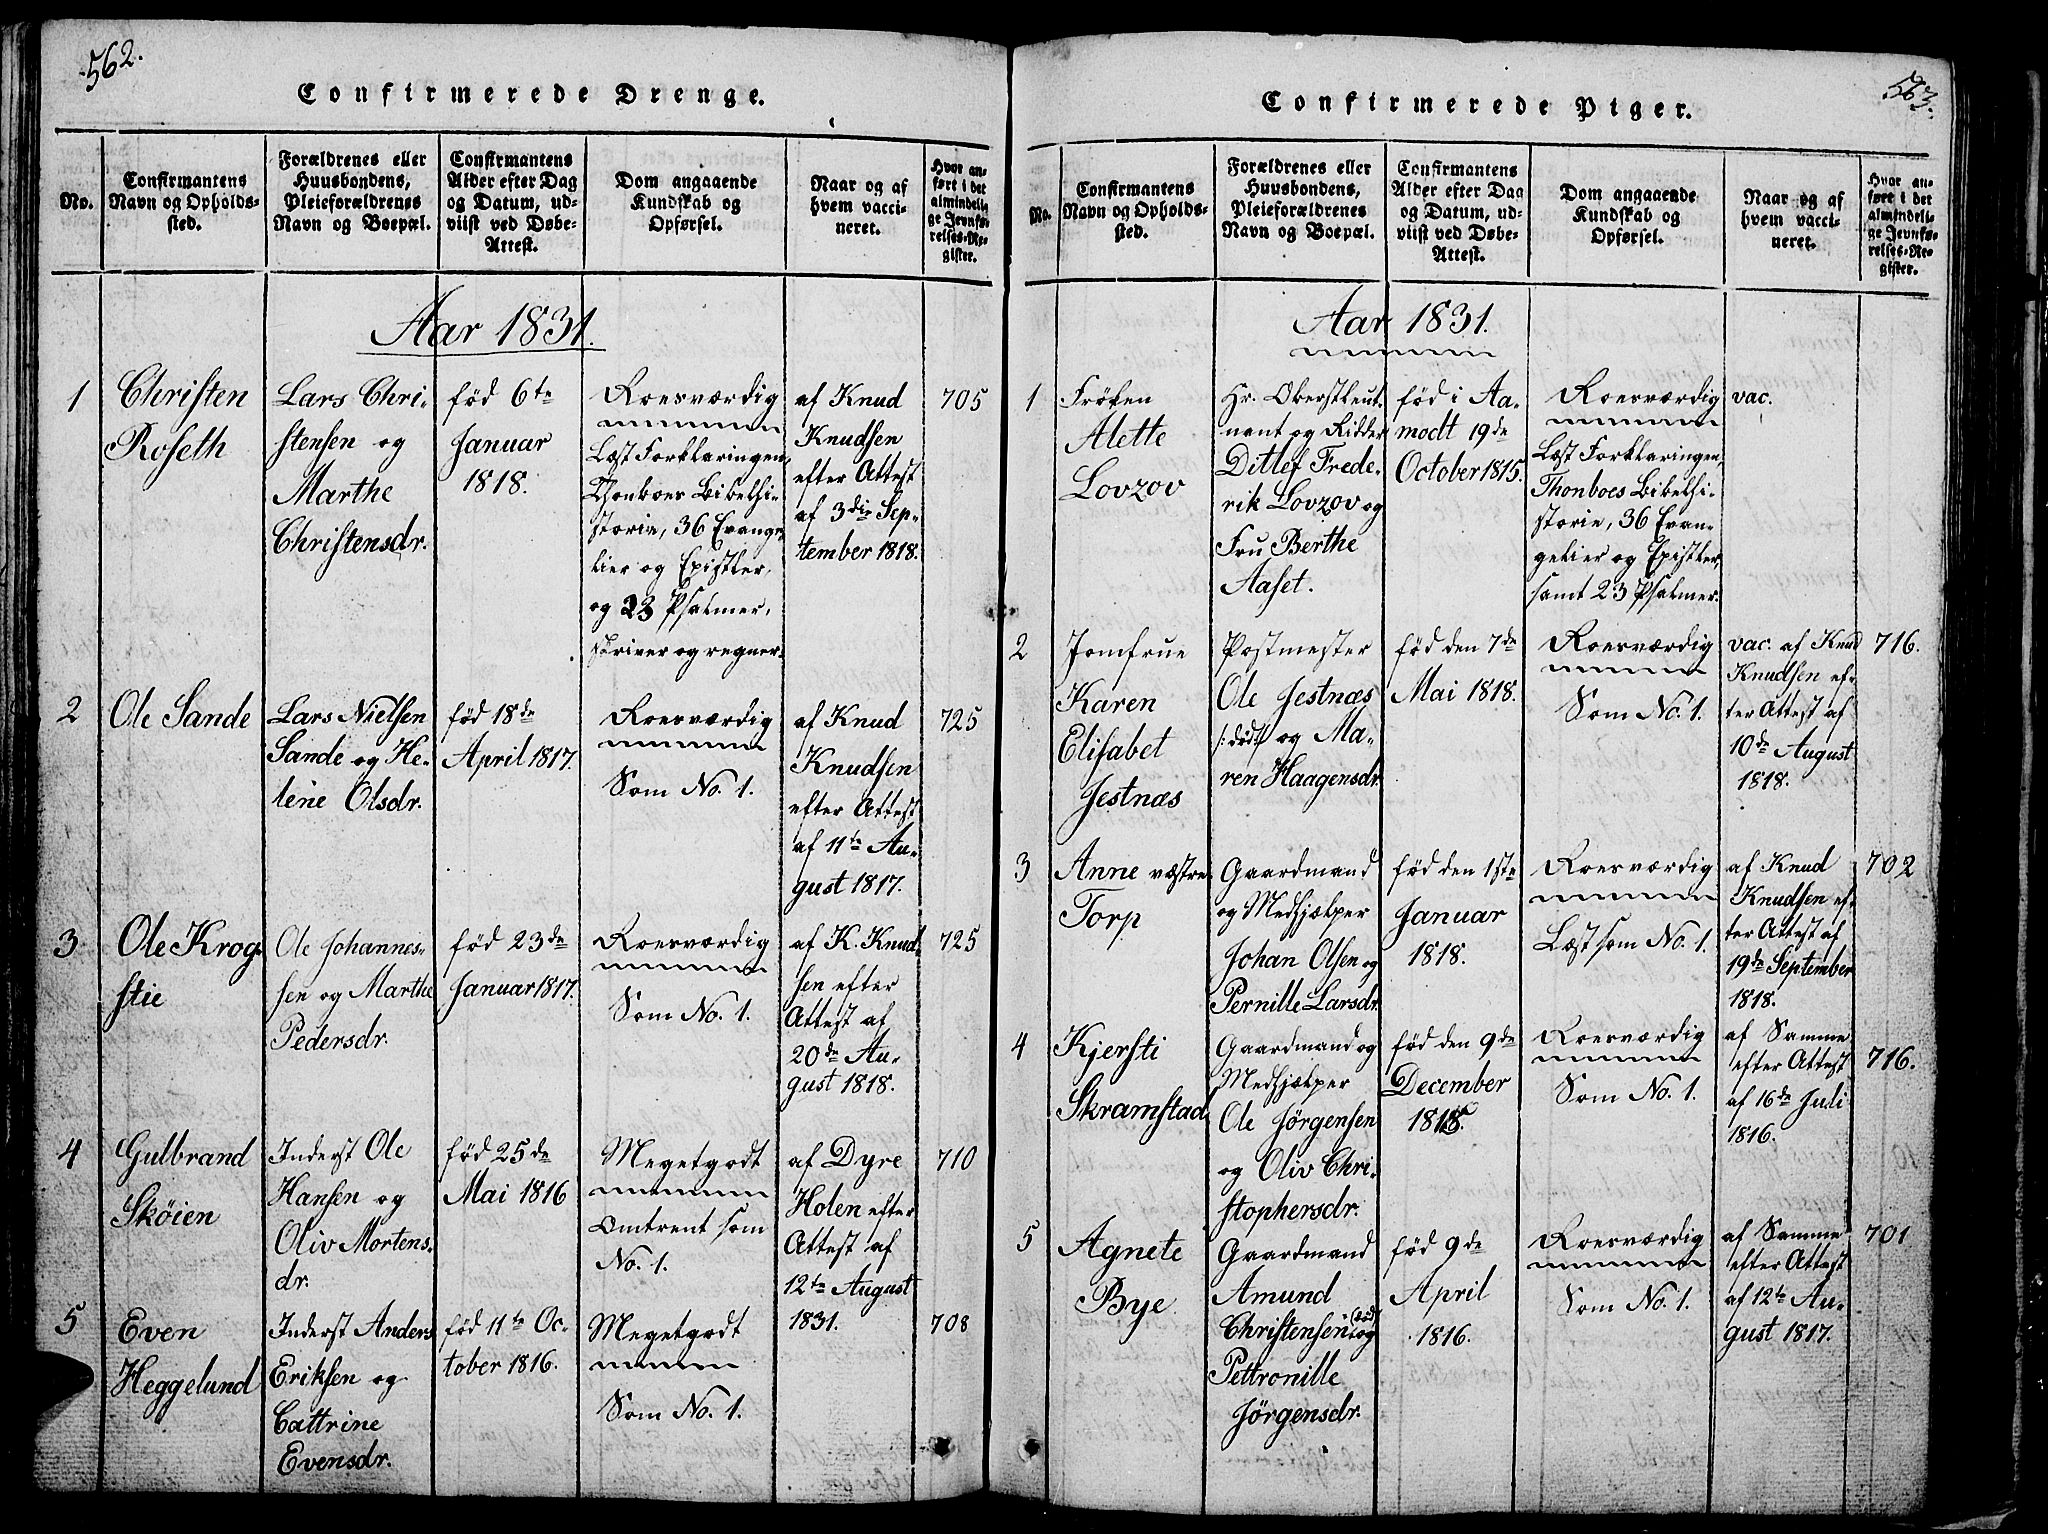 562.
Confirmerede Drenge.
No.
Confirmantens
Navn og Opholds-
sted.
Forældrenes eller
Huusbondens,
Pleieforældrenes
Navn og Boepæl.
Confirmantens
Alder efter Dag
og Datum, ud-
viist ved Døbe-
Attest.
Dom angaaende
Kundskab og
Opførsel.
Naar og af
hvem vacci-
neret.
Hvor an-
ført i det
almindeli-
ge Jevnfø-
relses-Re-
gister.
Aar 1831.
1
Christen
Roseth
Lars Chri-
stensen og
Marthe
Christensdr.
fød 6te
Januar
1818.
Roesværdig
Læst Forklaringen,
Thonboes Bibelhi-
storie, 36 Evange-
lier og Epistler,
og 23 Psalmer,
skriver og regner.
af Knud
Knudsen
efter Attest
af 3die Sep-
tember 1818.
705
2
Ole Sande
Lars Nielsen
Sande og He-
lene Olsdr.
fød 18de
April 1817.
Roesværdig
Som No. 1.
af Knud
Knudsen
efter Attest
af 11te Au-
gust 1817.
725
3
Ole Krog-
stie
Ole Johannes-
sen og Marthe
Pedersdr.
fød 23de
Januar 1817.
Roesværdig
Som No. 1.
af K. Knud-
sen efter
Attest af
20de Au-
gust 1818.
725
4
Gulbrand
Skøien
Inderst Ole
Hansen og
Oliv Mortens-
dr.
fød 25de
Mai 1816
Megetgodt
Omtrent som
No. 1.
af Dyre
Holen efter
Attest af
12te August
1831.
710
5
Even
Heggelund
Inderst Anders
Eriksen og
Cattrine
Evensdr.
fød 11te Oc-
tober 1816.
Megetgodt
Som No. 1.
708
563.
Confirmerede Piger.
No.
Confirmantens
Navn og Opholds-
sted.
Forældrenes eller
Huusbondens,
Pleieforældrenes
Navn og Boepæl.
Confirmantens
Alder efter Dag
og Datum, ud-
viist ved Døbe-
Attest.
Dom angaaende
Kundskab og
Opførsel.
Naar og af
hvem vacci-
neret.
Hvor an-
ført i det
almindeli-
ge Jevnfø-
relses-Re-
gister.
Aar 1831.
1
Frøken
Alette
Lovzov
Hr. Oberstleut-
nant og Ridder
Ditlef Frede-
rik Lovzov og
Fru Berthe
Aaset.
fød i Aa-
modt 19de
October 1815.
Roesværdig
Læst Forklaringen,
Thonboes Bibelhi-
storie, 36 Evan-
gelier og Epistler,
samt 23 Psalmer.
vac.
2
Jomfrue
Karen
Elisabet
Jestnæs
Postmester
Ole Jestnæs
/:død:/ og Ma-
ren Haagensdr.
fød den 7de
Mai 1818.
Roesværdig
Som No. 1.
vac. af Knud
Knudsen ef-
ter Attest af
10de August
1818.
716.
3
Anne væstre
Torp
Gaardmand
og Medhjælper
Johan Olsen og
Pernille Larsdr.
fød den 1ste
Januar
1818.
Roesværdig
Læst som No. 1.
af Knud
Knudsen ef-
ter Attest af
19de September
1818.
702
4
Kjersti
Skramstad
Gaardmand og
Medhjælper
Ole Jørgensen
og Oliv Chri-
stophersdr.
fød den 9de
December
Roesværdig
Som No. 1.
af Samme
efter Attest
af 16de Juli
1816.
716.
5
Agnete
Bye
Gaardmand
Amund
Christensen (død) og
Pettronille
Jørgensdr.
fød 9de
April
1816.
Roesværdig
Som No. 1.
af Samme
efter Attest
af 12te Au-
gust 1817.
701